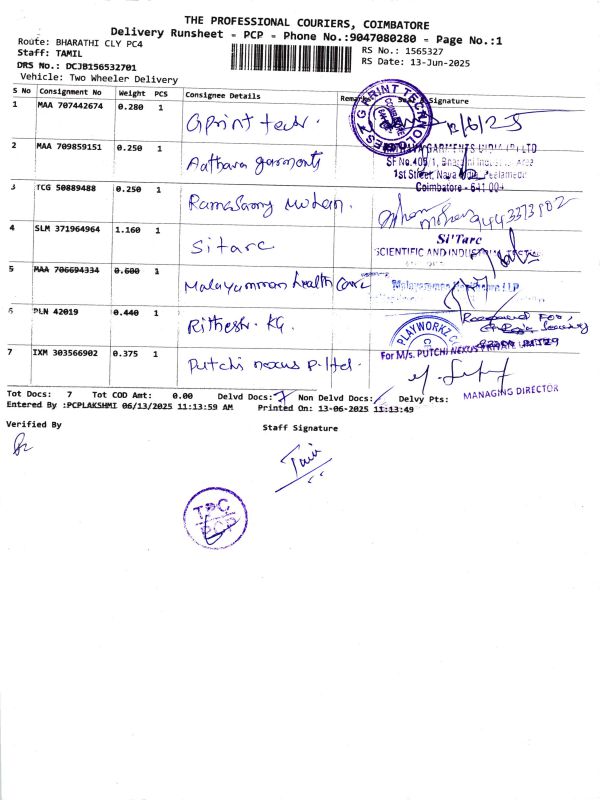 THE PROFESSIONAL COURIERS, COIMBATORE
Delivery Runsheet - PCP - Phone No.:9047080280 - Page No.:1
Route: BHARATHI CLY PC4
Staff: TAMIL
DRS No.: DCJB156532701
Vehicle: Two Wheeler Delivery
RS No.: 1565327
RS Date: 13-Jun-2025
S No Consignment No Weight PCS Consignee Details Signature
1 MAA 707442674 0.280 1 Gprint tech. 12/6/25
G PRINT TECHNOLO
2 MAA 709859151 0.250 1 Aathava garments
GARMENTS INDIA (P) LTD
SF No.405/1,
1st Street,
Coimbatore
3 TCG 50889488 0.250 1 Ramasamy Mohan. 9443373902
4 SLM 371964964 1.160 1 Sitarc
Si'Tarc
SCIENTIFIC AND
5 MAA 706694334 0.600 1 Malayamman health Care
6 PLN 42019 0.440 1 Rithesh. KG.
PLAYWORKZ
7 IXM 303566902 0.375 1 Putchi nexus P. ltd.
For M/s. PUTCHI NEXUS PRIVATE
MANAGING DIRECTOR
Tot Docs: 7 Tot COD Amt: 0.00 Delvd Docs: 7 Non Delvd Docs: Delvy Pts:
Entered By :PCPLAKSHMI 06/13/2025 11:13:59 AM Printed On: 13-06-2025 11:13:49
Verified By
Staff Signature
TPC
PCP